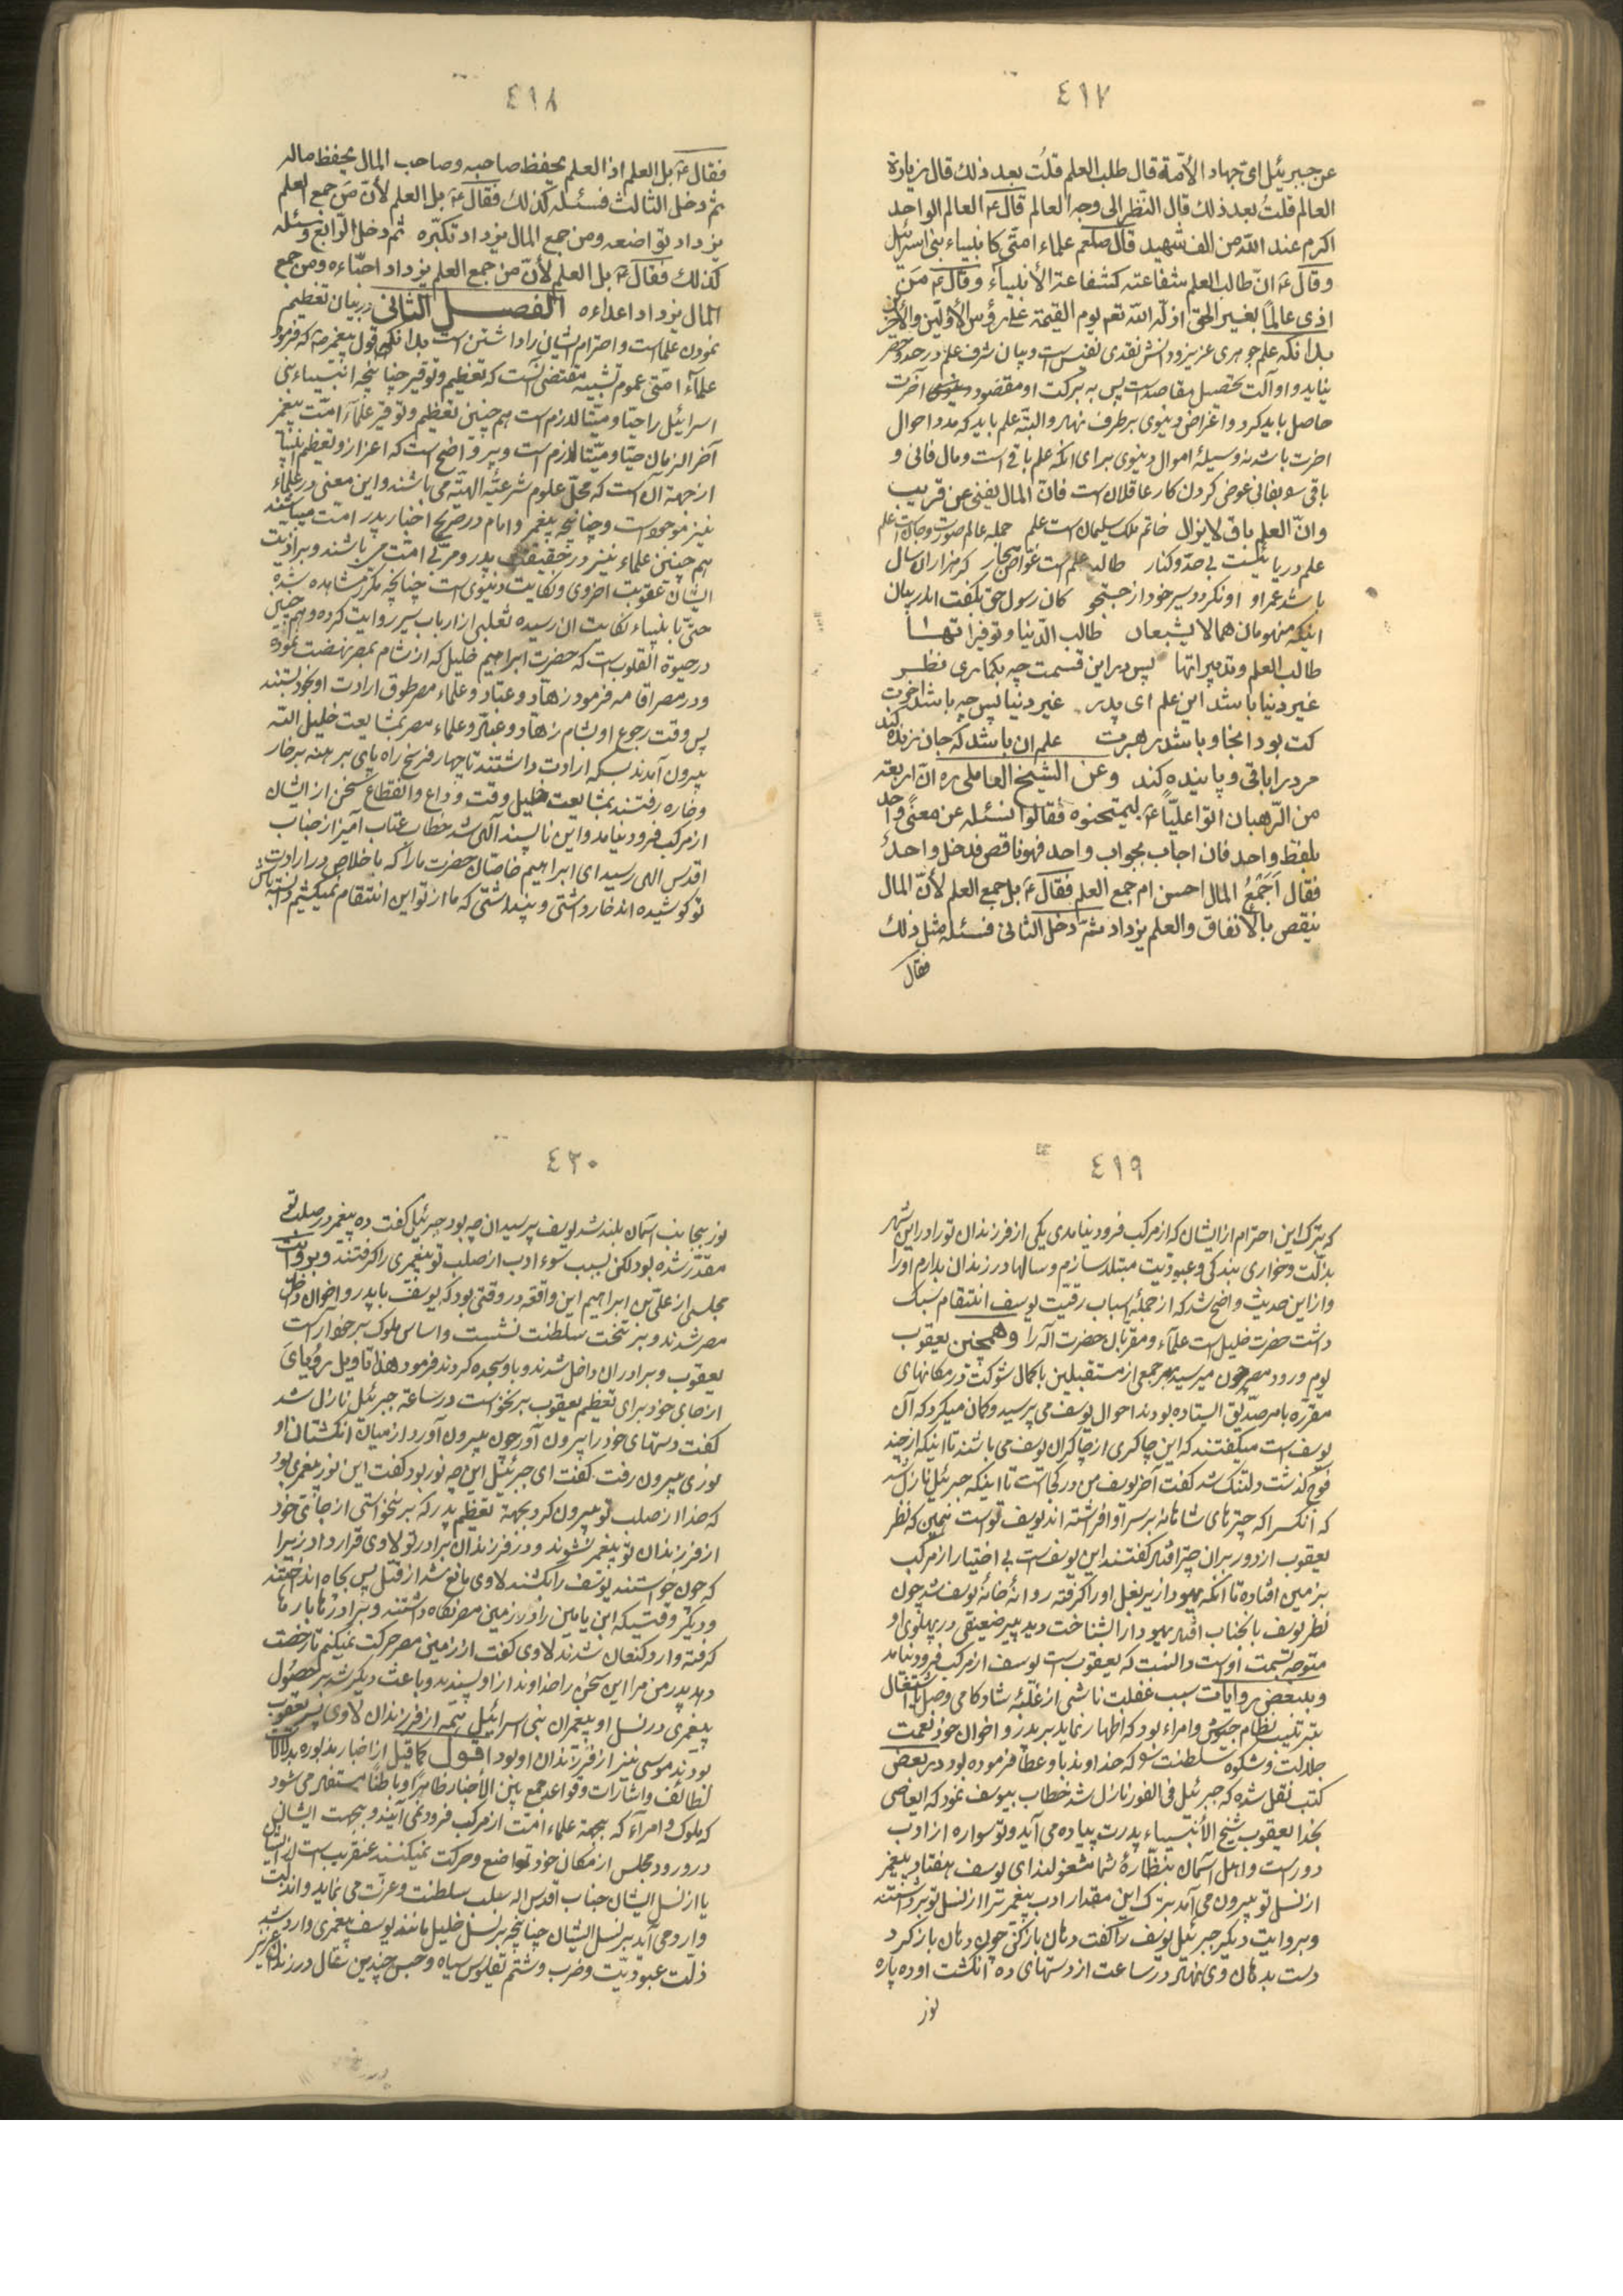 ٤١٧
عن جبرئيل ایّ جهاد الأمّة قال طلب العلم قلتُ بعد ذلك قال زيارة
العالم قلتُ بعد ذلك قال النّظر الى وجه العالم قال ع‍ العالم الواحد
اكرم عند اللّه من الف شهيد قال صلعم علماء امتّى كانبياء بنى اسرائيل
وقال ع‍ انّ طالب العلم شفاعته كشفاعة الأنبياء وقال ع‍ مَن
اذى عالماً بغير الحقّ اذلّه اللّه تعم يوم القيمة على رؤس الأوّلين والأخرين
بدانکه علم جوهری عزیز ودانش نقدی نفیس است وبیان شرف علم در حد وحصر
نیاید واو آلت تحصیل مقاصد است پس به برکت او مقصود آخرت
حاصل باید کرد واغراض دنیوی بر طرف نهد والبتّه علم باید که مدد احوال
اخرت باشد نه وسیلهٔ اموال دنیوی برای انکه علم باقی است ومال فانی و
باقی سو بفانی عوض کردن کار عاقلان است فانّ المال یفنی عن قریب
وانّ العلم باق لا یزال خاتم ملک سلیمان است علم جمله عالم صورت وجان است علم
علم دریائیست بی حدّ وکنار طالب علم است غوّاص بحار کر هزاران سال
باشد عمر او او نکردد سیر خود از جستجو کان رسول حق بگفت اندر بیان
اینکه منهومان هما لا یشبعان طالب الدّنیا وتوفیراتها
طالب العلم وتدبیراتها پس در این قسمت چه بکماری نظر
غیر دنیا باشد این علم ای پدر غیر دنیا پس چه باشد اخرت
کت بود انجا وباشد رهبرت علم ان باشد که جان زنده کند
مرد را باقی وپاینده کند وعن الشیخ العاملی ره انّ اربعة
من الرّهبان اتوا علیّاً ع‍ لیمتحنوه فقالوا نسئله عن معنًی واحد
بلفظ واحد فان اجاب بجواب واحد فهو ناقص فدخل واحدٌ
فقال اَجَمْعُ المال احسن ام جمع العلم فقال ع‍ بل جمع العلم لأنّ المال
ینقص بالأنفاق والعلم یزداد ثمّ دخل الثانی فسئله مثل ذلك
فقال
٤١٨
فقال ع‍ بل العلم اذ العلم یحفظ صاحبه وصاحب المال یحفظ ماله
ثمّ دخل الثالث فسئله کذلك فقال ع‍ بل العلم لأنّ مَن جمع العلم
یزداد تواضعه ومن جمع المال یزداد تکبّره ثم دخل الرّابع وسئله
کذلك فقال ع‍ بل العلم لأنّ من جمع العلم یزداد احبّاءه ومن جمع
المال یزداد اعداءه الفصل الثانی در بیان تعظیم
نمودن علما است واحترام ایشان را داشتن است بدانکه قول پیغمبر ص‍ که فرمود
علماء امّتی عموم تشبیه مقتضی آنست که تعظیم وتوقیر چنانچه انبیاء بنی
اسرائیل را حیّا ومیّتا لازم است هم چنین تعظیم وتوقیر علماء امّت پیغمبر
آخر الزمان حیّا ومیّتا لازم است وپر واضح است که اعزاز وتعظیم انبیا
از جهة آن است که محلّ علوم شرعیّه الهیّه می باشند واین معنی در علماء
نیز موجود است وچنانچه پیغمبر وامام در صریح اخبار پدر امّت میباشند
هم چنین علماء نیز در حقیقت پدر ومربّی امّت می باشند وبر اذیت
ایشان عقوبت اخروی ونکایت دنیوی است چنانچه مکرّر مشاهده شده
حتّی بانبیاء نکایت ان رسیده ثعلبی از ارباب سیر روایت کرده وهم چنین
در حیوة القلوب است که حضرت ابراهیم خلیل که از شام بمصر نهضت نموده
ودر مصر اقامه فرمود زهّاد وعبّاد وعلماء مصر طوق ارادت او بخود بستند
پس وقت رجوع او بشام زهّاد وعبّاد وعلماء مصر بمشایعت خلیل اللّه
بیرون آمدند بسکه ارادت داشتند تا چهار فرسخ راه پای برهنه بر خار
وخاره رفتند بمشایعت خلیل وقت وداع وانقطاع سخن از ایشان
از مرکب فرود نیامد واین ناپسند آلهی شد خطاب عتاب آمیز از جناب
اقدس الهی رسید ای ابراهیم خاصّان حضرت ما را که باخلاص در ارادت
تو کوشیده اند خار داشتی وپنداشتی که ما از تو این انتقام نمیکشیم
٤١٩
که بترک این احترام از ایشان که از مرکب فرود نیامدی یکی از فرزندان تو را در این شهر
بذلّت وخواری بندکی وعبودیّت مبتلا سازم وسالها در زندان بدارم او را
واز این حدیث واضح شد که از جملهٔ اسباب رقّیت یوسف انتقام سبک
داشت حضرت خلیل است علماء ومقرّبان حضرت اله را وهمچنین یعقوب
یوم ورود مصر چون میرسید بهر جمعی از مستقبلین با کمال شوکت در مکانهای
مقرّره بامر صدّیق ایستاده بودند احوال یوسف می پرسید وکمان میکرد که آن
یوسف است میکفتند که این چاکری از چاکران یوسف می باشد تا اینکه از چند
فوج کذشت دلتنک شد کفت آخر یوسف من در کجاست تا اینکه جبرئیل نازل شد
که آنکسرا که چترهای شاهانه بر سر او افراشته اند یوسف تو است همین که نظر
یعقوب از دور بران چتر افتاد کفتند این یوسف است بی اختیار از مرکب
بر زمین افتاده تا آنکه یهودا زیر بغل او را کرفته روانهٔ خانهٔ یوسف شد چون
نظر یوسف بانجناب افتاد یهودا را شناخت دید پیر ضعیفی در پهلوی او
متوجه بسمت او است دانست که یعقوب است یوسف از مرکب فرود نیامد
وببعض روایات سبب غفلت ناشی از غلبهٔ شادکامی وصل یا اشتغال
بترتیب نظام جیوش وامراء بود که اظهار نماید بر پدر واخوان خود نعمت
جلالت وشکوه سلطنت را که خداوند باو عطا فرموده بود ودر بعض
کتب نقل شده که جبرئیل فی الفور نازل شد خطاب بیوسف نمود که ایعاصی
بخدا یعقوب شیخ الأنبیاء پدرت پیاده می آید وتو سواره از ادب
دور است واهل آسمان بنظّارهٔ شما مشغولند ای یوسف هفتاد پیغمبر
از نسل تو بیرون می آمد بترک این مقدار ادب پیغمبر ترا از نسل تو برداشتند
وبروایت دیکر جبرئیل یوسف را کفت دهان باز کن چون دهان باز کرد
دست بدهان وی نهاد در ساعت از دستهای ده انکشت او ده پاره
نور
٤٢٠
نور بجانب آسمان بلند شد یوسف پرسید ان چه بود جبرئیل کفت ده پیغمبر در صلب تو
مقدّر شده بود لکن بسبب سوء ادب از صلب تو پیغمبری را کرفتند وبروایت
مجلسی از علیّ بن ابراهیم این واقعه در وقتی بود که یوسف با پدر واخوان داخل
مصر شدند وبر تخت سلطنت نشست واساس ملوک بر خود آراست
یعقوب وبرادران داخل شدند وباو سجده کردند فرمود هذا تاویل رؤیای
از جای خود برای تعظیم یعقوب برنخواست در ساعة جبرئیل نازل شد
کفت دستهای خود را بیرون آور چون بیرون آورد از میان انکشتان او
نوری بیرون رفت کفت ای جبرئیل این چه نور بود کفت این نور پیغمبری بود
که خدا از صلب تو بیرون کرد بجهة تعظیم پدر که برنخواستی از جای خود
از فرزندان تو پیغمبر نشوند ودر فرزندان برادر تو لاوی قرار داد زیرا
که چون خواستند یوسف را بکشند لاوی مانع شد از قتل پس بچاه انداختند
ودیکر وقتیکه ابن یامین را در زمین مصر نکاه داشتند وبرادرها بارها
کرفته وارد کنعان شدند لاوی کفت از زمین مصر حرکت نمیکنم تا رخصت
دهد پدر من مرا این سخن را خداوند از او پسندید وباعث دیکر شد بر حصول
پیغمبری در نسل او پیغمبران بنی اسرائیل همه از فرزندان لاوی پسر یعقوب
بودند موسی نیز از فرزندان او بود اقول کما قیل از اخبار مذبوره بدلالت
لطائف واشارات وقواعد جمع بین الأخبار ظاهراً وباطناً مستفاد می شود
که ملوک وامراء که بجهة علماء امّت از مرکب فرود نمی آیند وبجهت ایشان
در ورود مجلس از مکان خود تواضع وحرکت نمیکنند عنقریب است از ایشان
یا از نسل ایشان جناب اقدس اله سلب سلطنت وعزّت می نماید واذیّت
وارد می آید بر نسل ایشان چنانچه بر نسل خلیل مانند یوسف پیغمبری وارد شد
ذلّت عبودیّت وضرب وشتم سیاه وحبس چندین سال در زندان عزیز